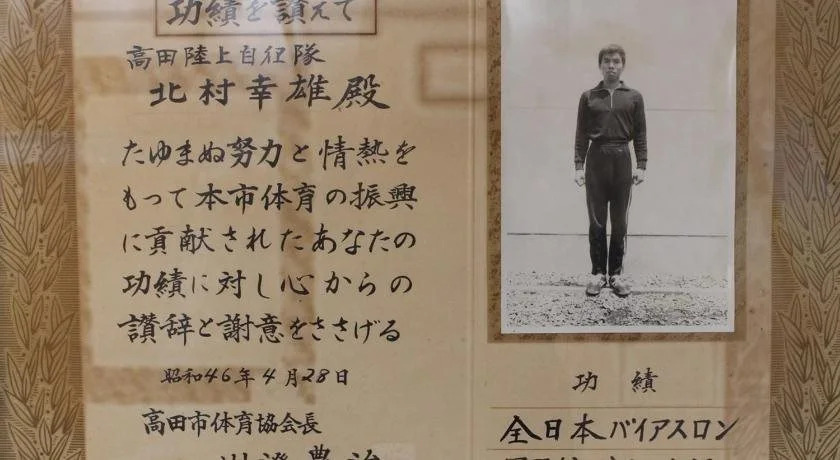 功績を讃えて
高田陸上自衛隊
北村幸雄殿
たゆまぬ努力と情熱を
もって本市体育の振興
に貢献されたあなたの
功績に対し心からの
讃辞と謝意をささげる
昭和46年4月28日
高田市体育協会長
功績
全日本バイアスロン